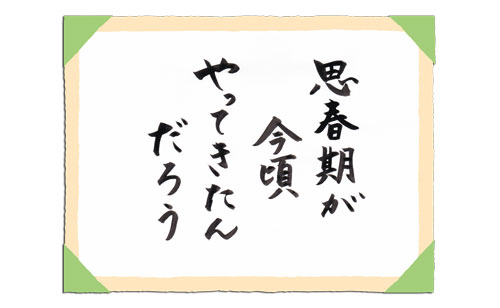 思春期が
今頃
やってきたん
だろう